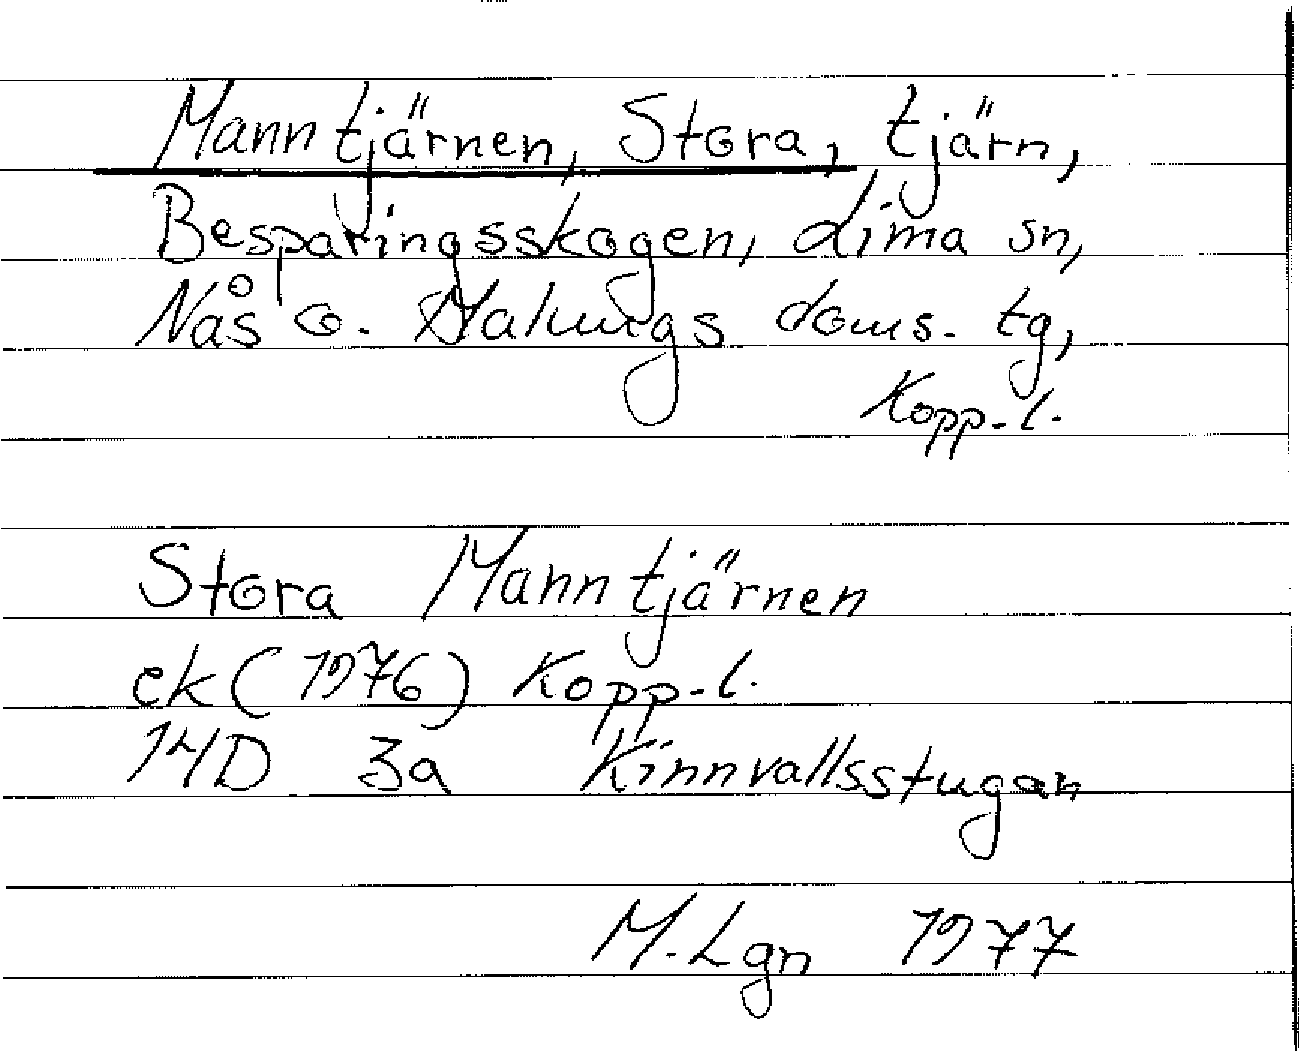 Manntjärnen, Stora, tjärn,
Besparingsskogen, Lima sn,
Nås o. Malungs doms. tg,
Kopp. l.
Stora Manntjärnen
ek (1976) Kopp. l.
14D 3a Kinnvallsstugan
M. Lgn 1977